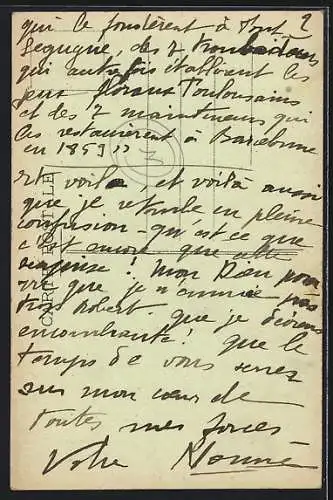 qui le fondèrent à Font 2
Ségugne, des 7 troubadours
qui autrefois établirent les
jeux floraux Toulousains
et des 7 mainteneurs qui
les restaurèrent à Barcelonne
en 1859 "
3
Et voilà, et voilà aussi
que je retombe en pleine
confusion - qu'est ce que
c'est encore que cette
surprise! Mon Dieu pour
vu que je n'ennuie pas
trop Robert. que je
encombrante! que le
temps de vous serrer
sur mon cœur de
toutes mes forces
Votre
CARTE POSTALE